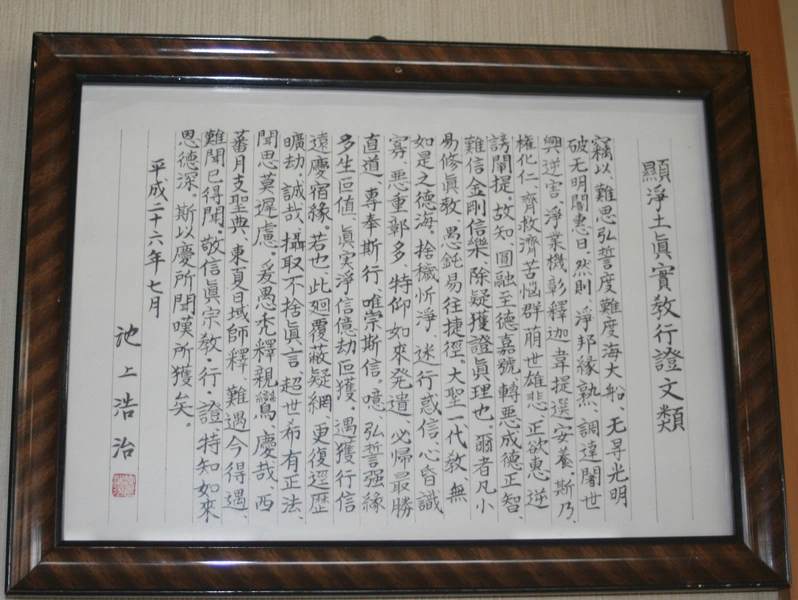 顯淨土眞實教行證文類
竊以、難思弘誓度難度海大船、无㝵光明
破无明闇惠日。然則、淨邦緣熟、調達闍世
興逆害、淨業機彰、釋迦韋提選安養。斯乃、
權化仁、齊救濟苦惱群萠、世雄悲、正欲惠逆
謗闡提。故知、圓融至德嘉號、轉惡成德正智、
難信金剛信樂、除疑獲證眞理也。爾者凡小
易修眞教、愚鈍易往捷徑。大聖一代教、無
如是之德海。捨穢忻淨、迷行惑信、心昏識
寡、惡重鄣多、特仰如來發遣、必歸最勝
直道、專奉斯行、唯崇斯信。噫、弘誓强緣
多生叵值、眞実淨信億劫叵獲。遇獲行信
遠慶宿緣。若也、此廻覆蔽疑網、更復逕歷
曠劫。誠哉、攝取不捨眞言、超世希有正法、
聞思莫遲慮。爰愚禿釋親鸞、慶哉、西
蕃月支聖典、東夏日域師釋、難遇今得遇、
難聞已得聞。敬信眞宗教・行・證、特知如來
恩德深。斯以慶所聞嘆所獲矣。
平成二十六年七月
池上浩治